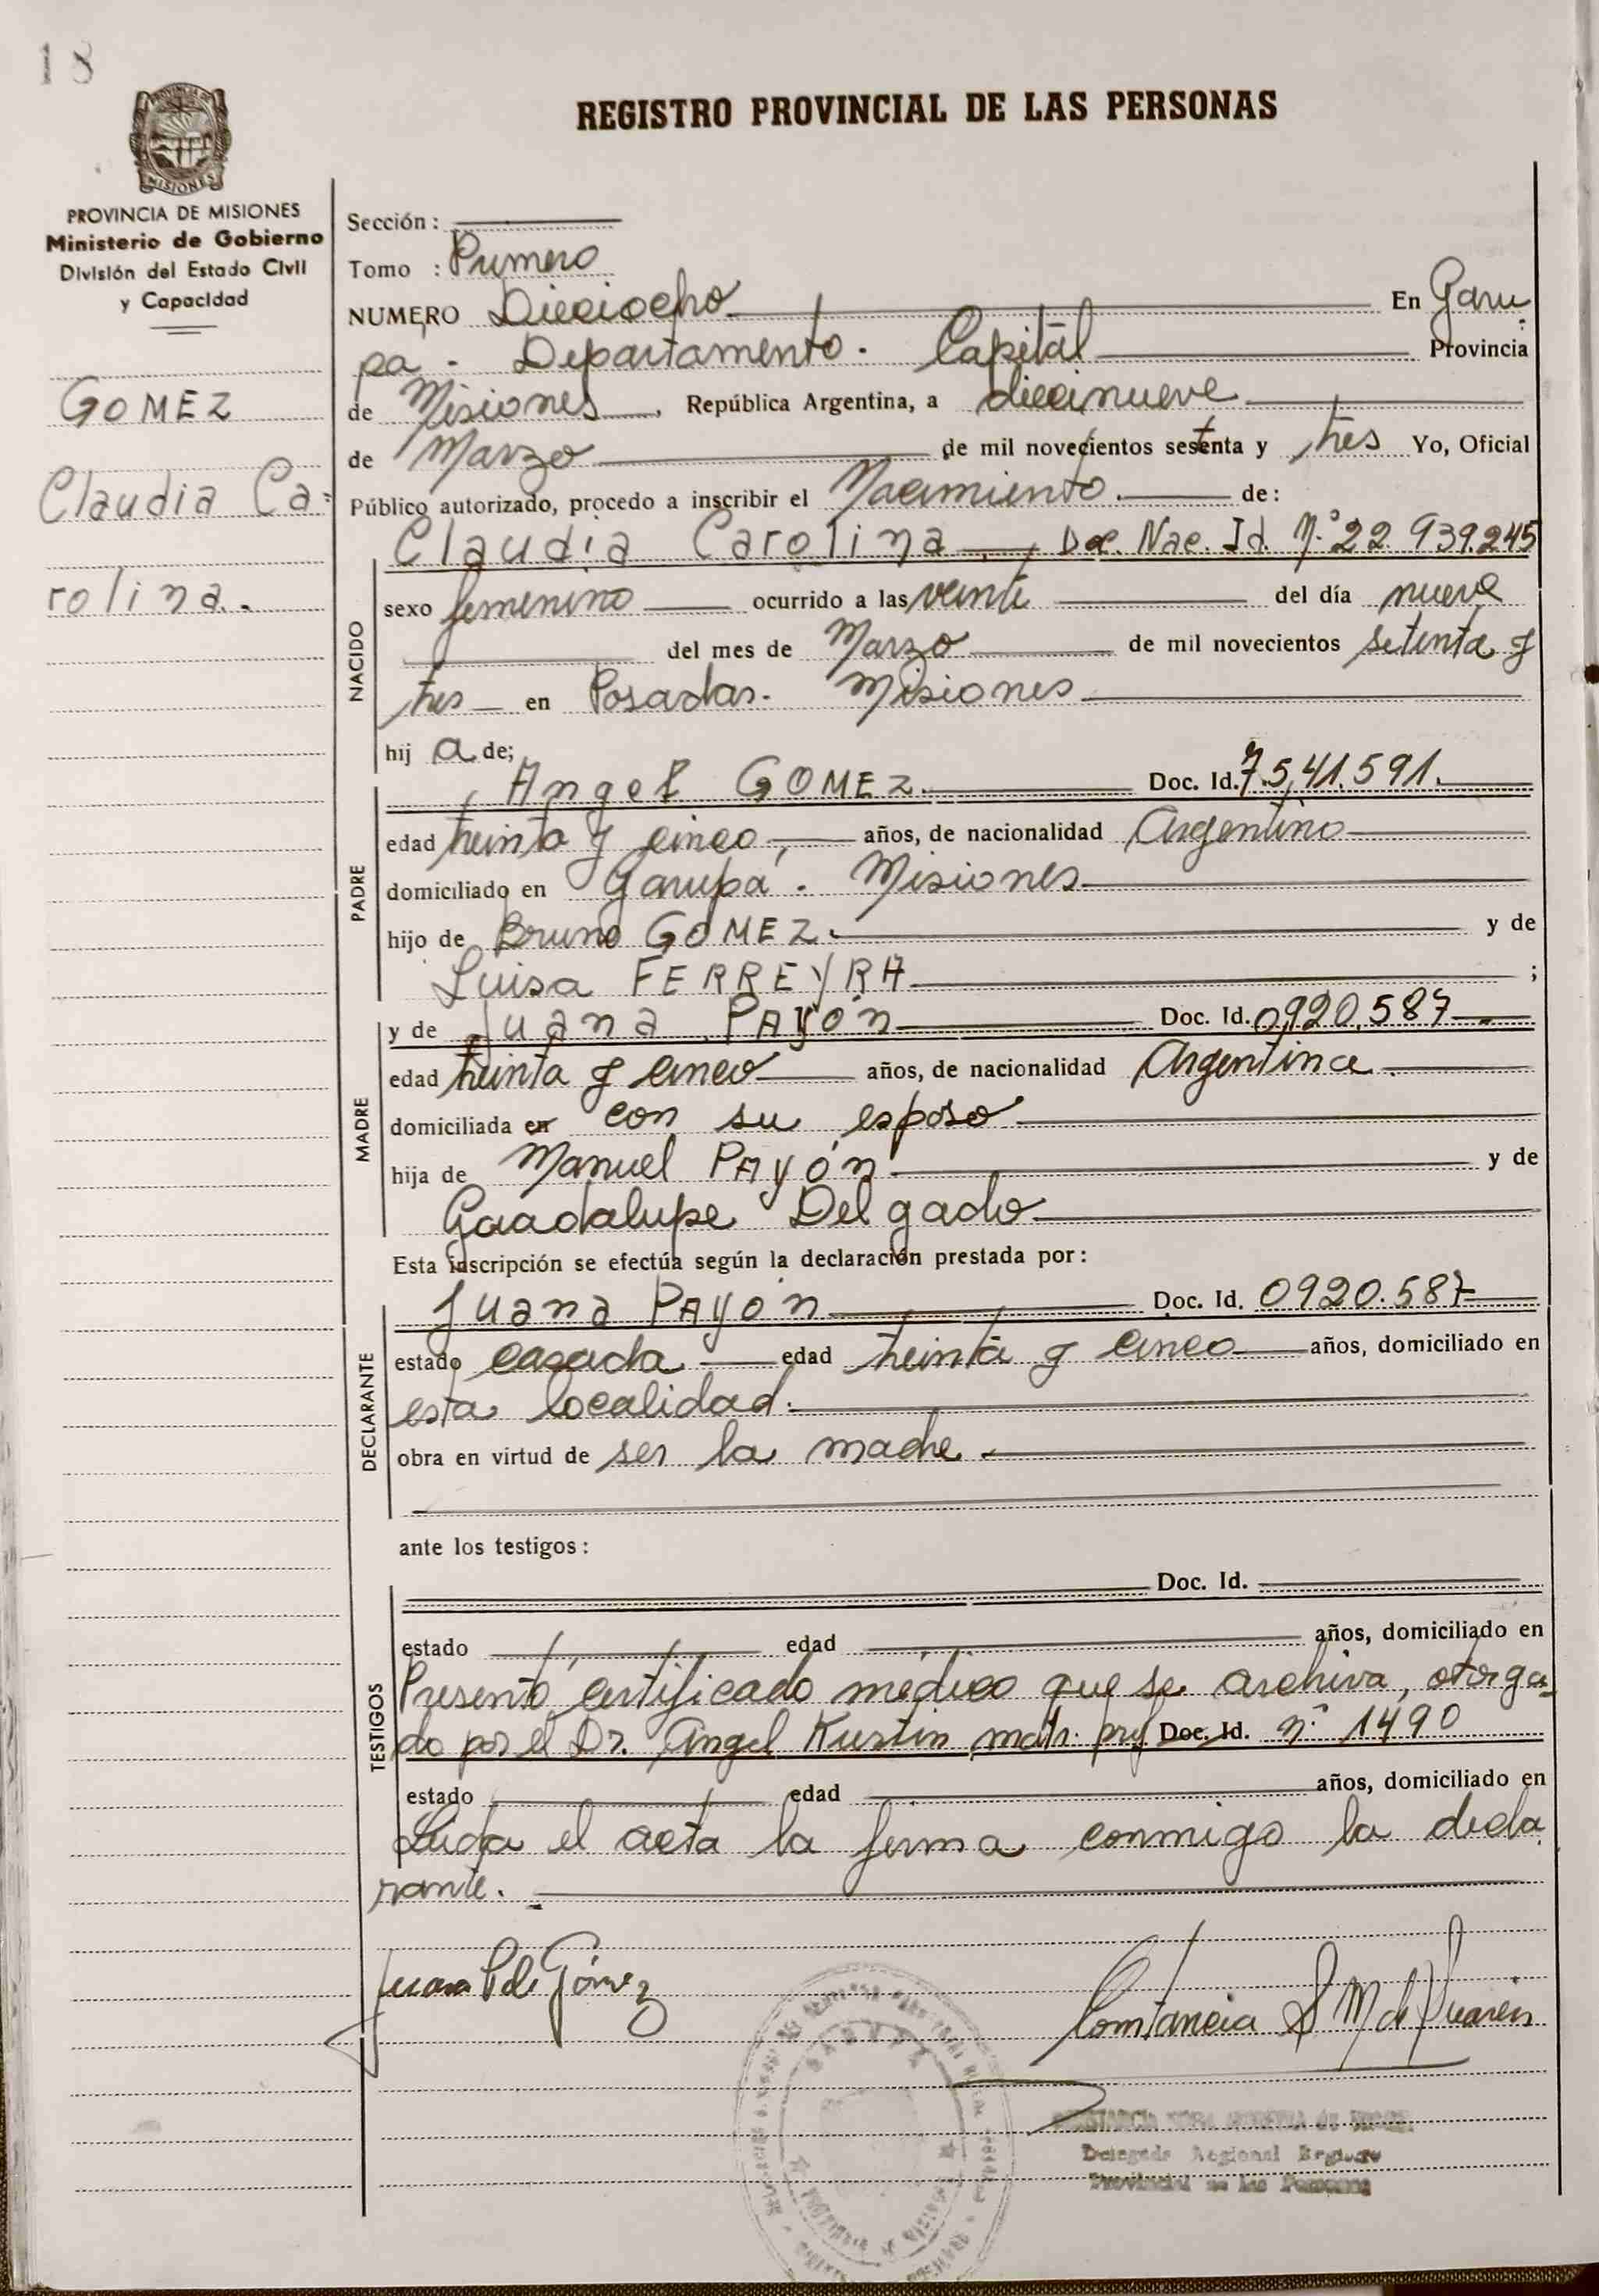 18
REGISTRO PROVINCIAL DE LAS PERSONAS
PROVINCIA DE MISIONES
Ministerio de Gobierno
División del Estado Civil
y Capacidad
GOMEZ
Claudia Ca=
rolina.
Sección:
Tomo : Primero
NUMERO Dieciocho En Garu
pa - Departamento. Capital Provincia
de Misiones, República Argentina, a diecinueve
de Marzo de mil novecientos setenta y tres Yo, Oficial
Público autorizado, procedo a inscribir el Nacimiento. de:
Claudia Carolina, Doc. Nac. Id. N.° 22.939.245
NACIDO
sexo femenino ocurrido a las veinte del día nueve
del mes de Marzo de mil novecientos setenta y
tres en Posadas. Misiones
hij a de;
Angel GOMEZ. Doc. Id. 7.541.591.
PADRE
edad treinta y cinco, años, de nacionalidad Argentino
domiciliado en Garupá. Misiones
hijo de Bruno GOMEZ. y de
Luisa FERREYRA ;
MADRE
y de Juana PAYón Doc. Id. 0920.587
edad treinta y cinco años, de nacionalidad Argentina.
domiciliada en con su esposo
hija de Manuel PAYón y de
Guadalupe Delgado
Esta inscripción se efectúa según la declaración prestada por:
DECLARANTE
Juana PAYón Doc. Id. 0920.587
estado casada edad treinta y cinco años, domiciliado en
esta localidad.
obra en virtud de ser la madre.
ante los testigos:
TESTIGOS
Doc. Id.
estado edad años, domiciliado en
Presentó certificado médico que se archiva, otorga-
do por el Dr. Angel Kustin matr. prof. Doc. Id. n° 1490
estado edad años, domiciliado en
Leida el acta la firma conmigo la decla
rante.
Juana P de Gómez
Constancia S M de
Delegada Regional Registro
Provincial de las Personas